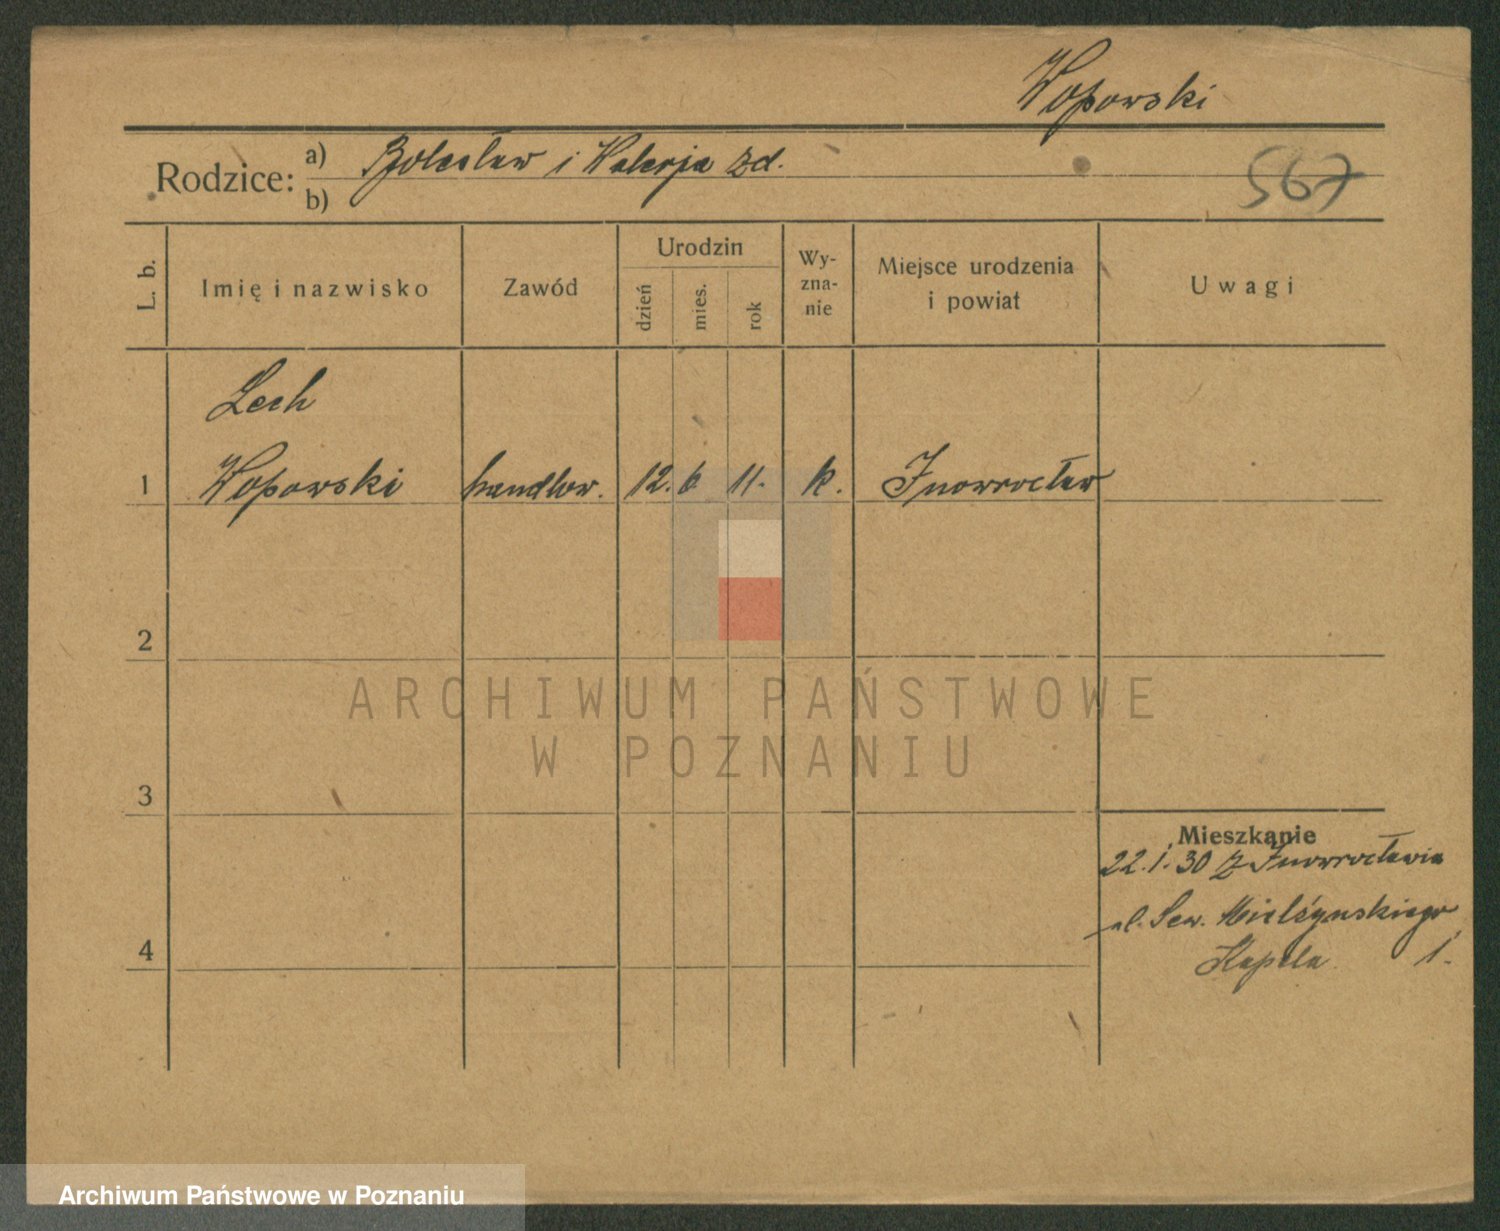 Wopowski
Rodzice: a) Bolesław i Walerja zd.
b)
567
L. b. Imię i nazwisko Zawód Urodzin dzień mies. rok Wy-zna-nie Miejsce urodzenia i powiat Uwagi
Lech
1 Wopowski handlow. 12. 6 11. k. Inowrocław
2
ARCHIWUM PAŃSTWOWE
W POZNANIU
3
Mieszkanie
22.1.30 z Inowrocławia
ul. Sew. Mielżynskiego
4
Kapela 1.
Archiwum Państwowe w Poznaniu